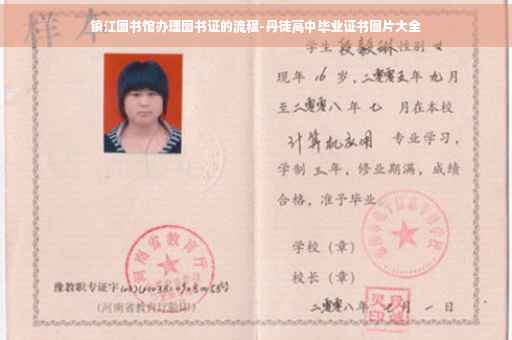 镇江图书馆办理图书证的流程-丹徒高中毕业证书图片大全
样本
学生段毅琳性别女
现年16岁，二零零五年九月
至二零零八年七月在本校
计算机应用 专业学习，
学制三年，修业期满，成绩
合格，准予毕业
学校（章）
校长（章）
二零零八年七月一日
河南省教育厅
豫教职专证字
（河南省教育厅验印）